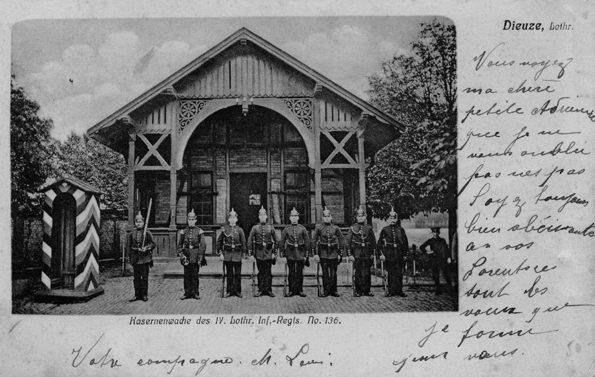 Dieuze, Lothr.
Vous voyez
ma chère
petite Adrienne
que je ne
vous oublie
pas
Soyez toujours
bien obéissante
à vos
tout les
voeux que
je forme
pour vous.
Kasernenwache des IV. Lothr. Inf.-Regts. No. 136.
Votre compagne. M. Loui